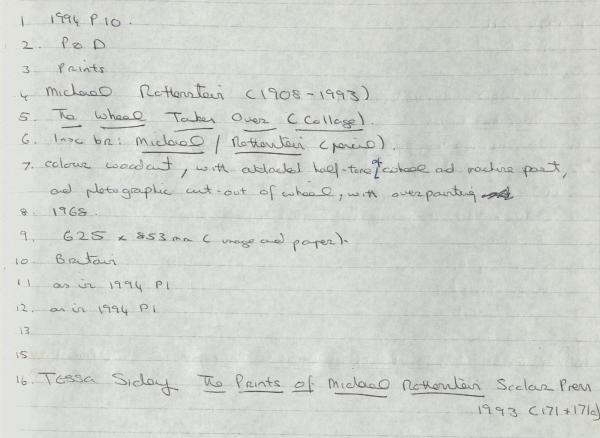 1 1994 P10.
2. P & D
3 Prints
4 Michael Rothenstein (1908-1993)
5. The Wheel Takes Over (Collage).
6. Insc br: Michael / Rothenstein (pencil).
7. colour woodcut, with attached half-tone of wheel and machine part,
and photographic cut-out of wheel, with overpainting
8. 1968.
9. 625 x 853 mm (image and paper).
10 Britain
11 as in 1994 P1
12. as in 1994 P1
13
15
16. Tessa Sidey The Prints of Michael Rothenstein Scolar Press
1993 (171+171a)